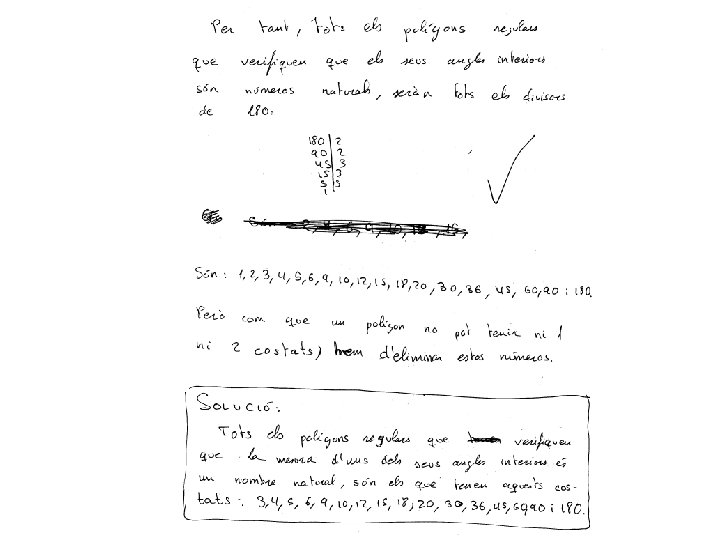 Per tant, tots els polígons regulars
que verifiquen que els seus angles interiors
són números naturals, seràn tots els divisors
de 180.
180 | 2
90 | 2
45 | 3
15 | 3
5 | 5
1
Són: 1,2,3,4,5,6,9,10,12,15,18,20,30,36,45,60,90 i 180.
Però com que un polígon no pot tenir ni 1
ni 2 costats, hem d'eliminar estos números.
SOLUCIÓ:
Tots els polígons regulars que verifiquen
que la mesura d'uns dels seus angles interiors és
un nombre natural, són els que tenen aquests cos-
tats: 3,4,5,6,9,10,12,15,18,20,30,36,45,60,90 i 180.